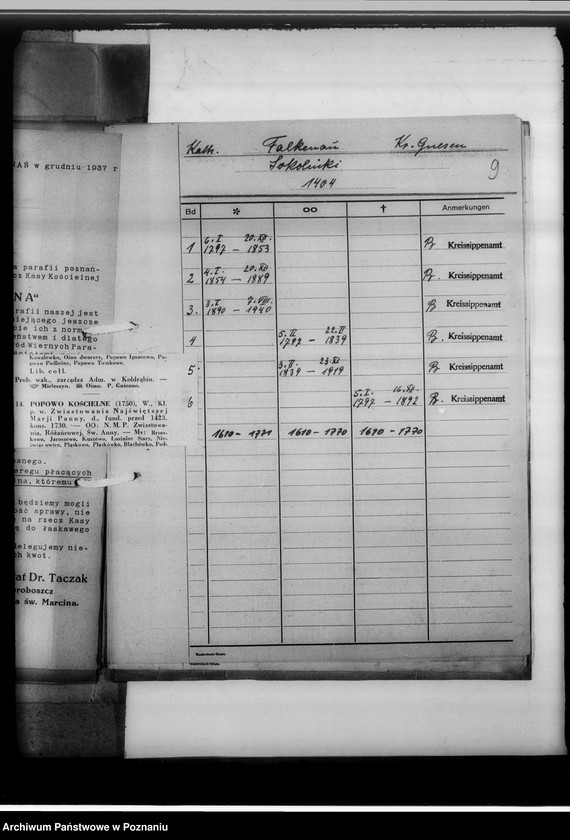 AŃ w grudniu 1937 r
a parafii poznań-
cz Kasy Kościelnej
NA"
rafii naszej jest
iejącego jeszcze
cie ich z norm
eństwem i dlatego
ród Wiernych Para-
Kowalewko, Oino dworzec, Popowo Ignacewo, Po-
powo Podleśne, Popowo Tomkowo.
Lib. coll.
Prob. wak., zarządza Adm. w Kołdrąbiu. —
Mieleszyn. Oino. P. Gniezno.
14. POPOWO KOŚCIELNE (1750), W., Kl.
p. w. Zwiastowania Najświętszej
Marji Panny, d., fund. przed 1423,
kons. 1730. — OO: N. M. P. Zwiastowa-
nia, Różańcowej, Św. Anny. — Mc: Brzes-
kowo, Jaroszewo, Kuszewo, Łosiniec Stary, Nie-
świastowice, Płaskowo, Płaskówko, Błachówko, Pod-
sanego.
eregu płacących
ina, któremu
będziemy mogli
ość sprawy, nie
na rzecz Kasy
ę do łaskawego
elegujemy nie-
ch kwot.
at Dr. Taczak
proboszcz
a św. Marcina.
Kath. Falkenau Kr. Gnesen
Sokolniki
1404
9
Bd * oo † Anmerkungen
6. I 20. XII.
1 1797 — 1853 Kreissippenamt
4. I. 20. XII
2 1854 — 1889 Kreissippenamt
3. I 7. VIII.
3. 1890 — 1940 Kreissippenamt
5. II 22. II
4 1792 — 1839 Kreissippenamt
3. II. 23. XI
5 1839 — 1919 Kreissippenamt
5. I. 16. XI.
6 1797 — 1892 Kreissippenamt
1610 — 1771 1610 — 1770 1690 — 1770
Archiwum Państwowe w Poznaniu